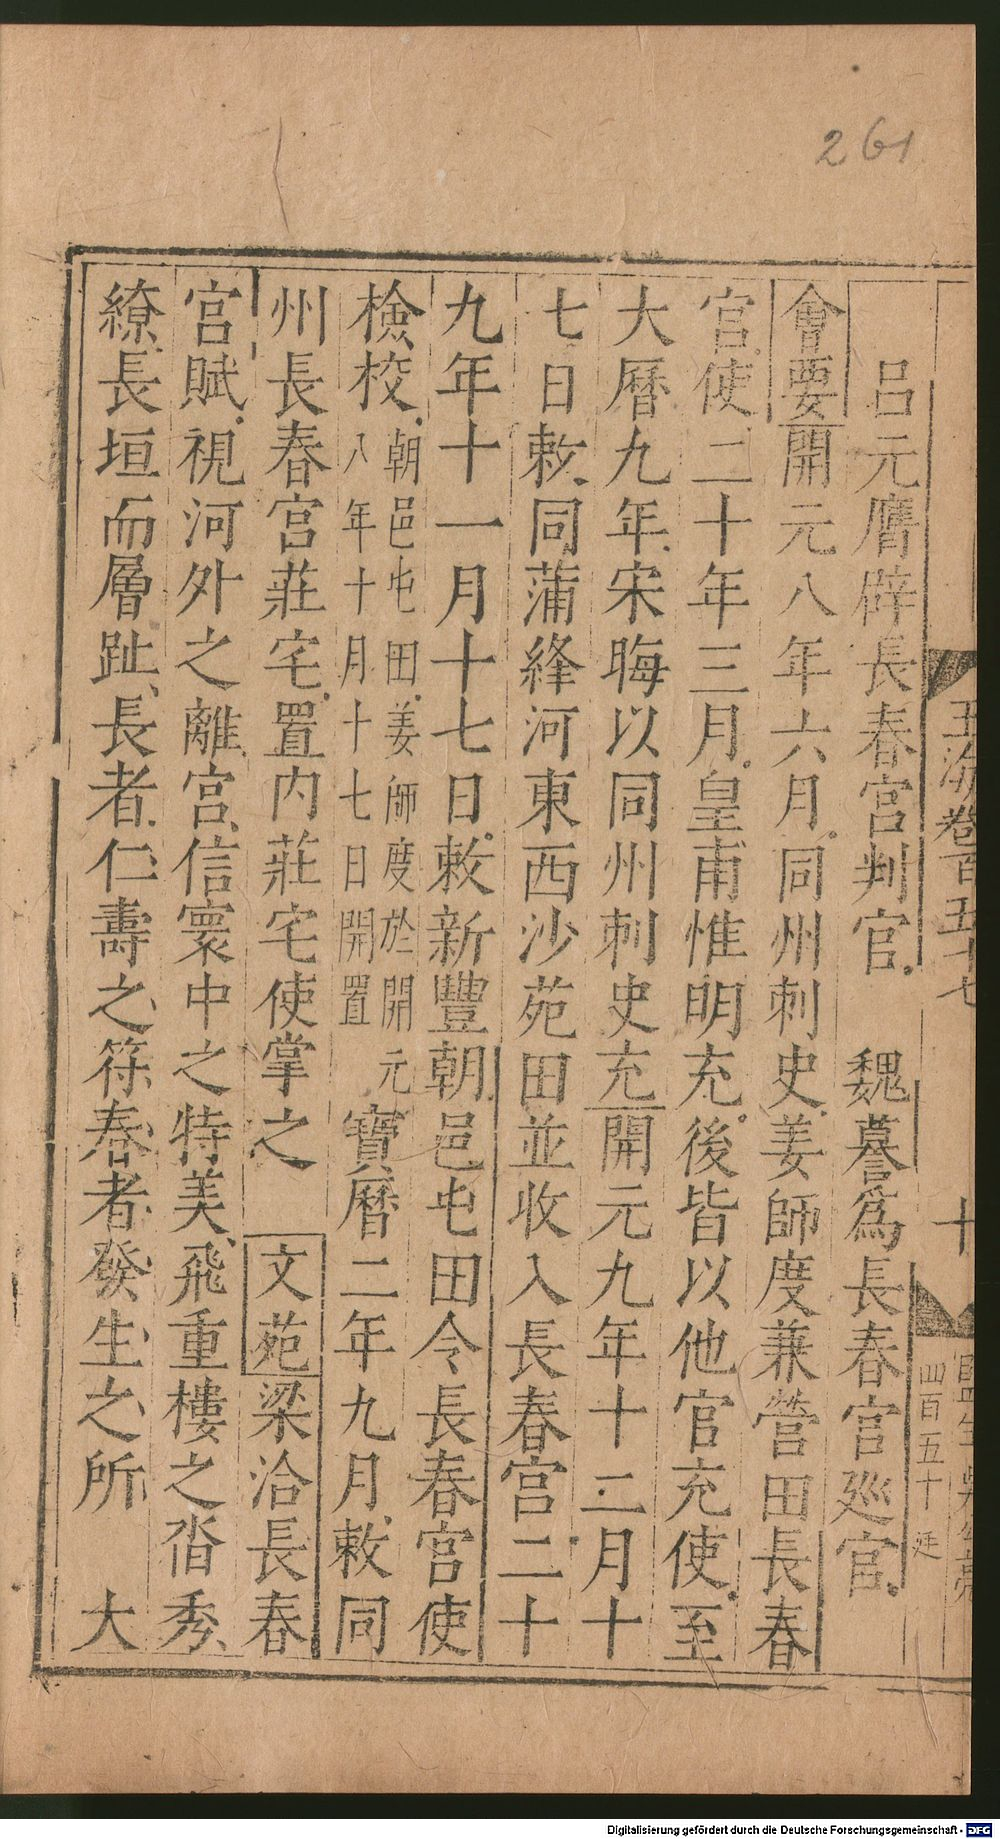 261
玉海卷百五十七
十
四百五十
呂元膺辟長春宮判官 魏謩為長春宮廵官
會要開元八年六月同州刺史姜師度兼營田長春
宮使二十年三月皇甫惟明充後皆以他官充使至
大曆九年宋晦以同州刺史充開元九年十二月十
七日敕同蒲絳河東西沙苑田並收入長春宮二十
九年十一月十七日敕新豐朝邑屯田令長春宮使
檢校朝邑屯田姜師度於開元八年十月十七日開置寶曆二年九月敕同
州長春宮莊宅置內莊宅使掌之 文苑梁洽長春
宮賦視河外之離宮信寰中之特美飛重樓之沓秀
繚長垣而層趾長者仁壽之符春者發生之所 大
Digitalisierung gefördert durch die Deutsche Forschungsgemeinschaft - DFG